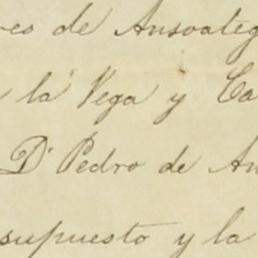 es de Ansoateg
la Vega y Ca
Dn Pedro de An
supuesto y la